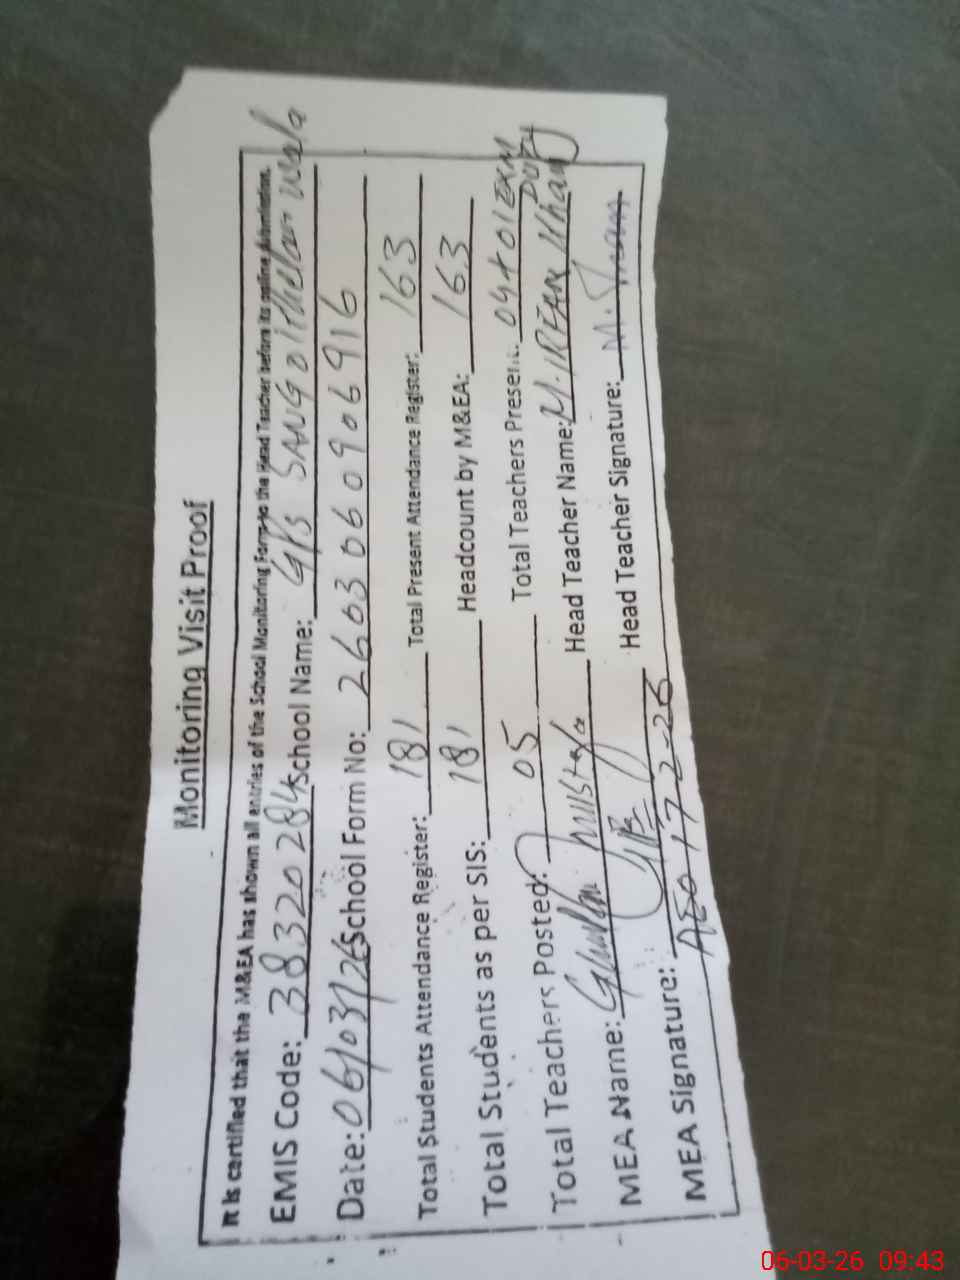 Monitoring Visit Proof
It is certified that the M&EA has shown all entries of the School Monitoring Form to the Head Teacher before its online submission.
EMIS Code: 38320284 School Name: GPS SANGOI thelan wala
Date: 06/03/26 School Form No: 2603060906916
Total Students Attendance Register: 181 Total Present Attendance Register: 163
Total Students as per SIS: 181 Headcount by M&EA: 163
Total Teachers Posted: 05 Total Teachers Present: 04+01 EXM DUTY
MEA Name: Ghulam Mustafa Head Teacher Name: M. IRFAN Khan
MEA Signature: Head Teacher Signature:
AEO 17-2-26
06-03-26 09:43